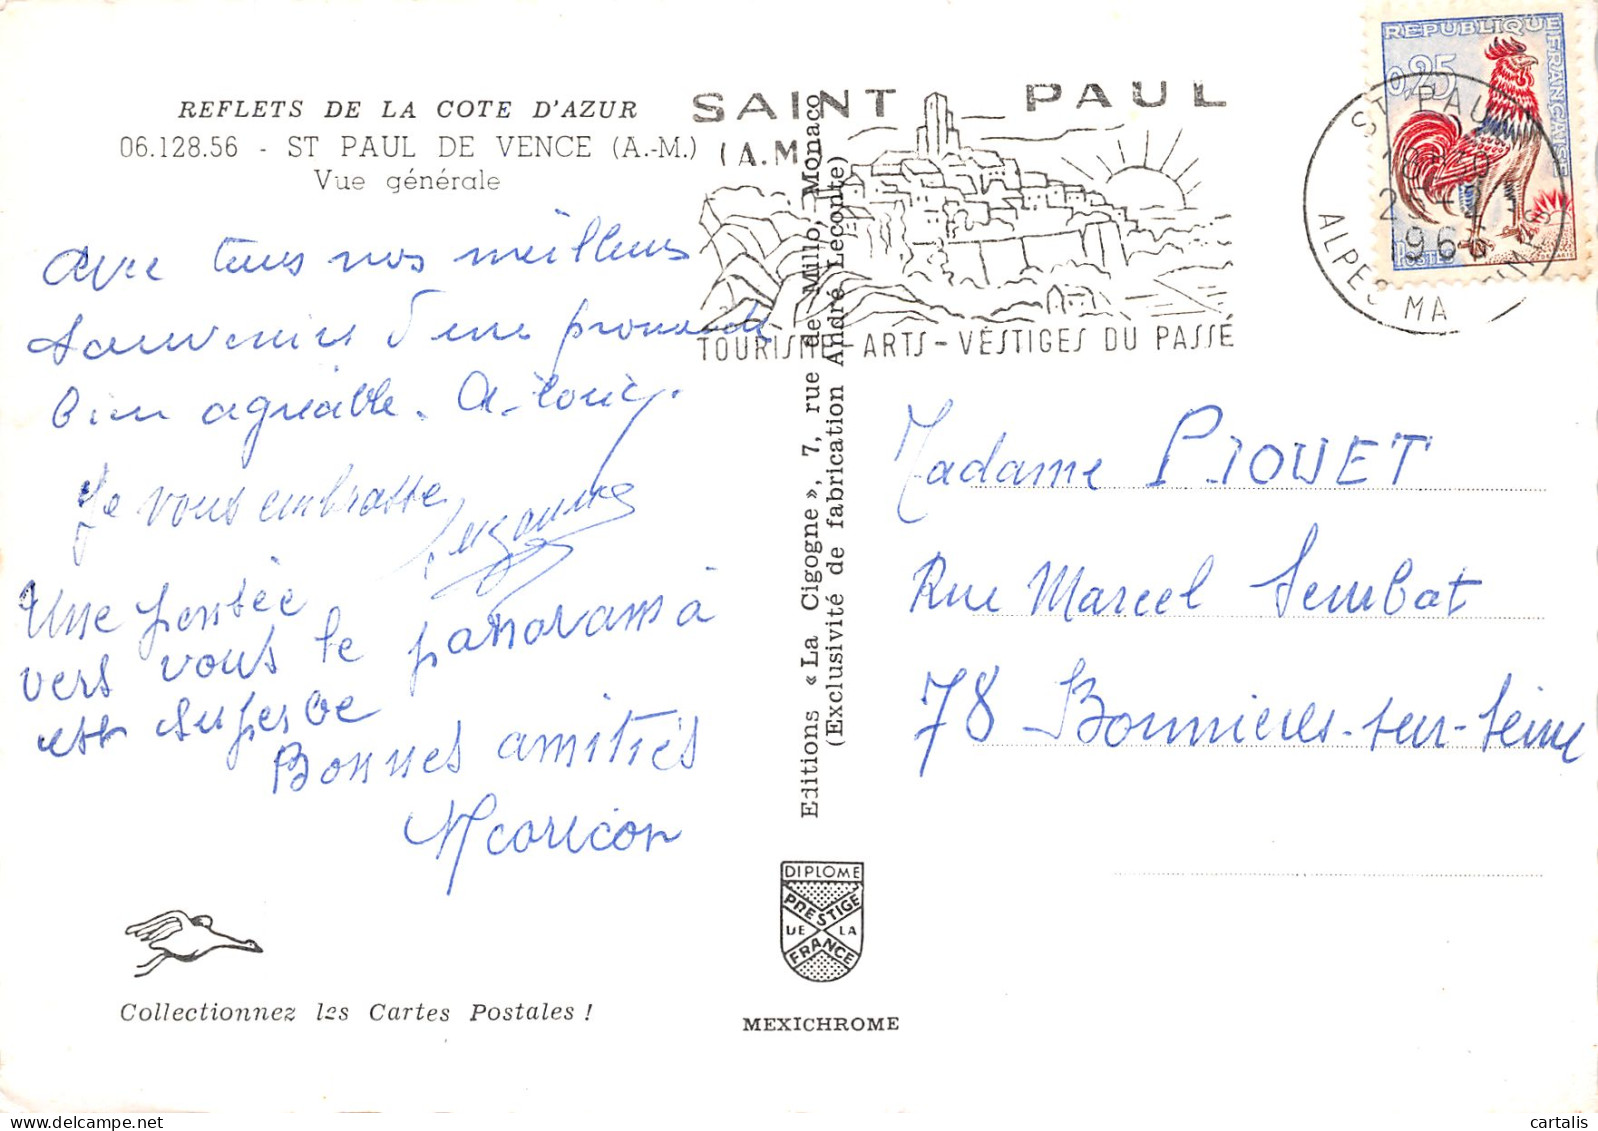 REFLETS DE LA COTE D'AZUR
06.128.56 - ST PAUL DE VENCE (A.-M.)
Vue générale
Avec tous nos meilleurs
souvenirs d'une promenade
bien agréable.
Je vous embrasse
Suzanne
Une pensée
vers vous le panorama
est superbe
Bonnes amitiés
Collectionnez les Cartes Postales !
Editions « La Cigogne », 7, rue de Millo, Monaco
(Exclusivité de fabrication André Leconte)
DIPLOME
PRESTIGE
DE LA
FRANCE
MEXICHROME
SAINT PAUL
(A.M.)
TOURISME - ARTS - VESTIGES DU PASSÉ
REPUBLIQUE FRANÇAISE
0,25
POSTES
ST PAUL
1966
ALPES MAR
Madame PIQUET
Rue Marcel Sembat
78 Bonnières-sur-Seine
cartalis